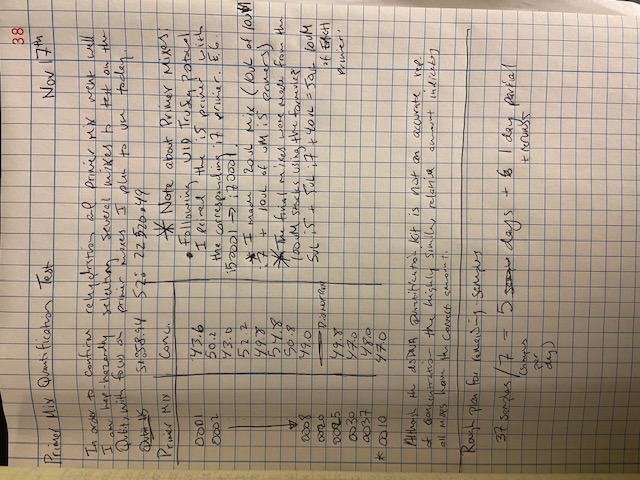 38
Primer Mix Quantification Test Nov 17th
In order to confirm rehydration of primer mix went well
I am hap-hazardly selecting several mixes to test on the
Qubit, with focus on primer mixes I plan to use today.
Qubit HS S1: 58.94 S2: 22520.49
Primer Mix Conc.
0001 43.6
0002 50.2
43.0
52.2
49.8
54.8
50.8
0008 49.0
0020 Did Not Run
0025 49.8
0030 47.0
0037 48.0
* 0010 47.0
* Note about Primer Mixes:
• Following UID TruSeq protocol
I paired the i5 primer with
the corresponding i7 primer. E.G.
i50001 → i70001.
* I made 20uL mix (10uL of 10uM
i7 + 10uL of uM i5 primers)
* The final mixes were made from the
100uM stocks using the formula:
5uL i5 + 5uL i7 + 40uL = 50uL 10uM
of EACH
primer.
Although the dsDNA Quantification Kit is not an accurate rep.
of concentration the highly similar relative amount indicates
all mixes have the correct amount.
Rough plan for remaining samples
37 samples / 7 = 5 days + 1 day partial
(samples + reruns
per
day)